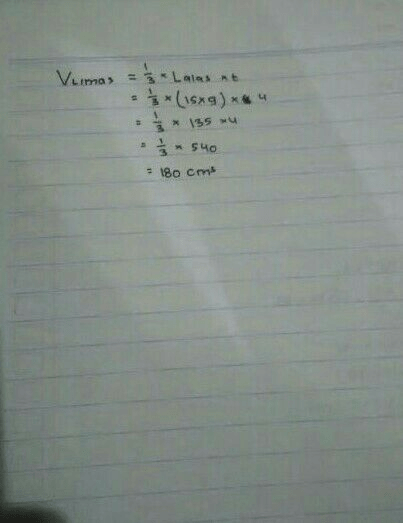 VLimas = 1/3 × Lalas × t
= 1/3 × (15×9) × 4
= 1/3 × 135 × 4
= 1/3 × 540
= 180 cm³